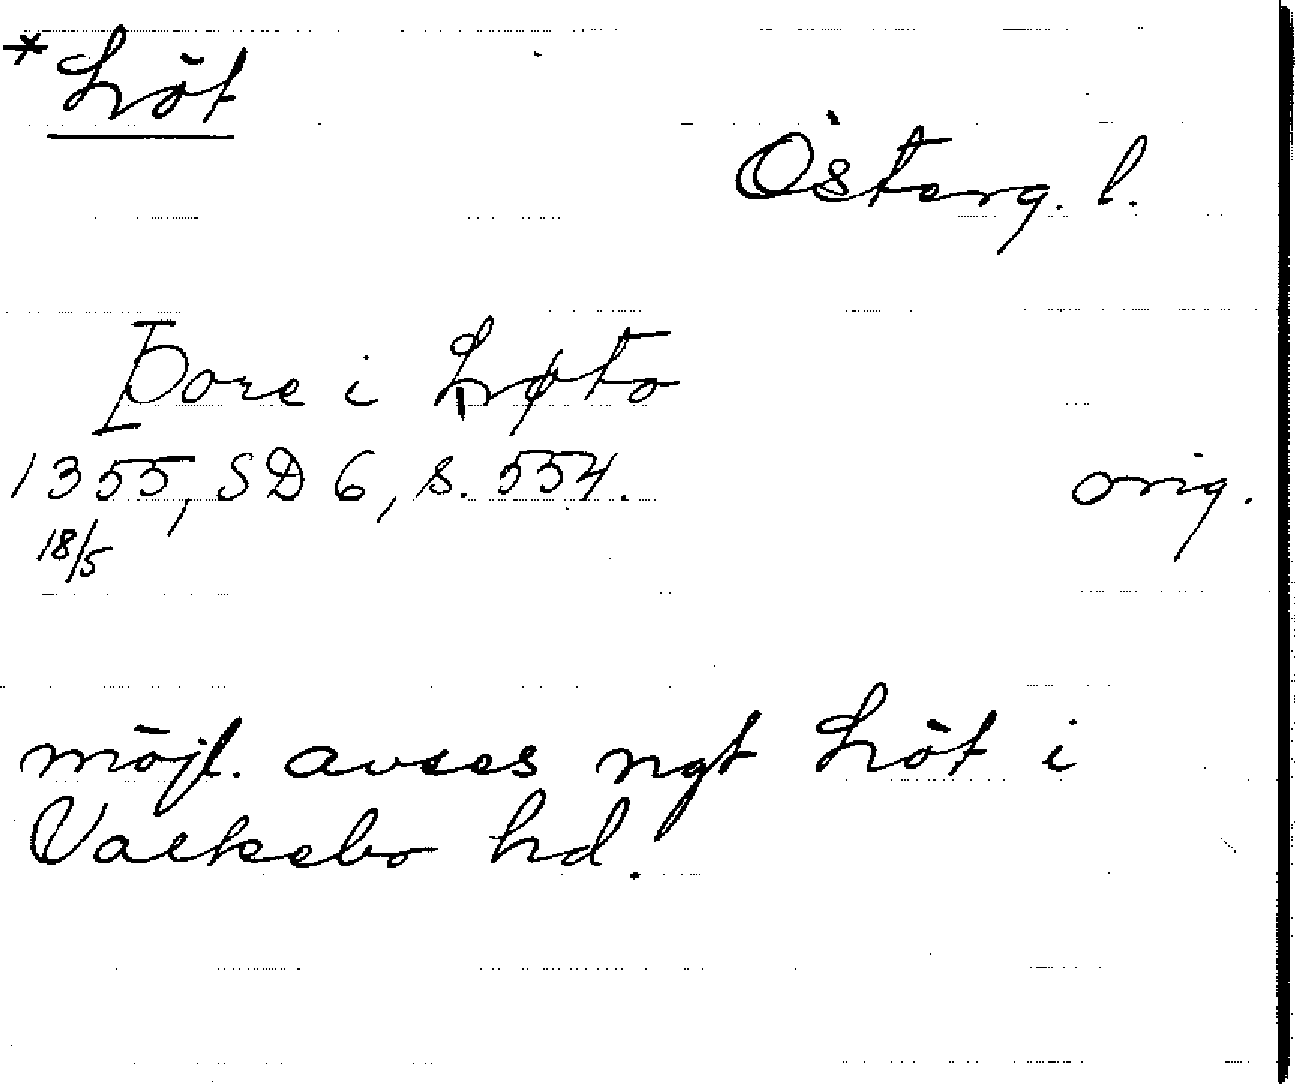 *Löt
Österg. l.
Þore i Løto
1355, SD 6, s. 554. orig.
18/5
möjl. avses ngt Löt i
Valkebo hd.